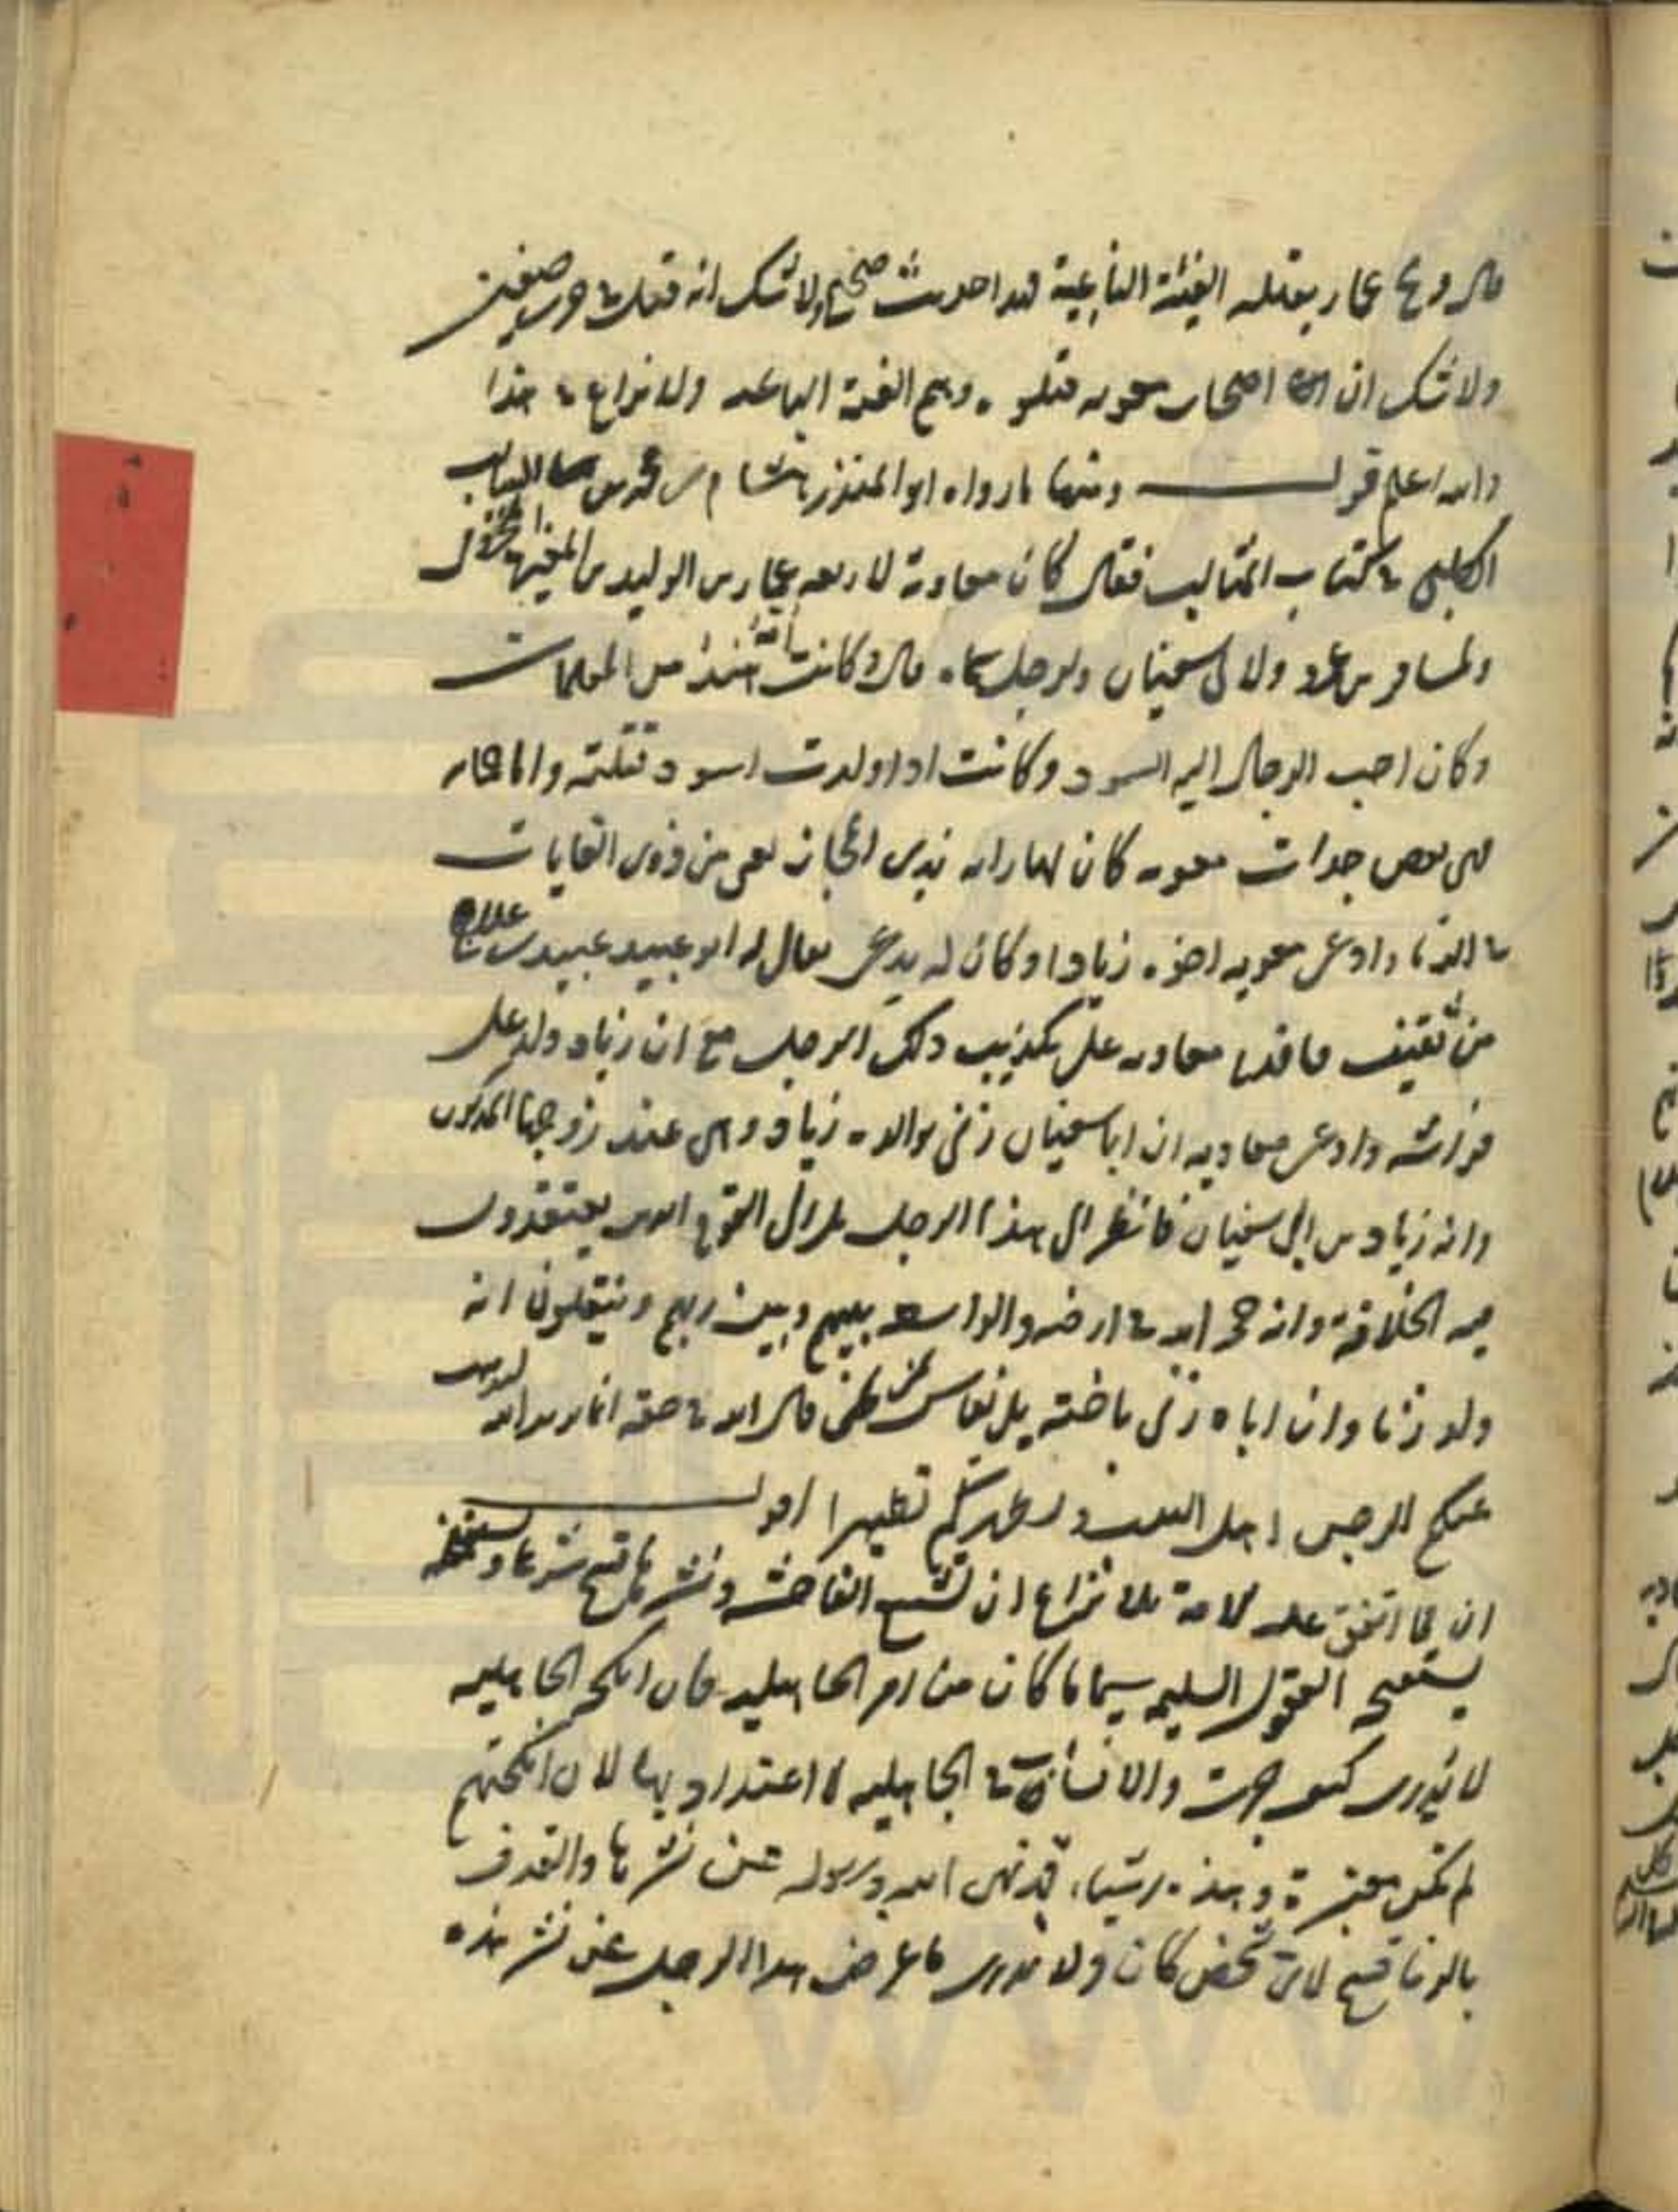 قال ويح عمار يقتله الفئة الباغية فهذا حديث صحيح ولا شك انه قتل في حرب صفين
ولا شك ان اصحاب معويه قتلوه وهم الفئة الباغية ولا نزاع في هذا
والله اعلم قوله ومنها ما رواه ابو المنذر هشام بن محمد بن السائب
الكلبي في كتاب المثالب فقال كان معاوية لاربعة عمارة بن الوليد بن المغيرة المخزومي
ولمسافر بن عمرو ولابي سفيان ولرجل سماه قال وكانت امه هند من المعلمات
وكان احب الرجال اليه السود وكانت اذا ولدت اسود قتلته واما حمامه
فهي بعض جدات معويه كان لها راية بذي المجاز يعني من ذوي الغايات
في الزنا وادعى معويه اخوه زيادا وكان له مدعي يقال له ابو عبيد عبيد بني علاج
من ثقيف فاقدم معاويه على تكذيب ذلك الرجل مع ان زياد ولد على
فراشه وادعى معاويه ان ابا سفيان زنى بوالده زياد وهي عند زوجها المذكور
وانه زياد بن ابي سفيان فانظر الى هذا الرجل بل الى القوم الذين يعتقدون
فيه الخلافة وانه حجة الله في ارضه والواسطه بينهم وبين ربهم وينقلون انه
ولد زنا وان اباه زنى باخته بل يقاس بمن قال الله في حقه انما يريد الله ليذهب
عنكم الرجس اهل البيت ويطهركم تطهيرا اقول
ان مما اتفق عليه بلا نزاع ان تشيع الفاحشه ونشرها قبيح شرعا
يستقبح العقول السليمه سيما ما كان من امر الجاهليه فان انكحه الجاهليه
لا يدرى كيف جرت والانساب في الجاهليه لا اعتداد بها لان انكحتهم
لم تكن معتبرة وهذه اشياء قد نهى الله ورسوله عن نشرها والقذف
بالزنا قبيح لاي شخص كان ولا ندري ما غرض هذا الرجل عن نشر هذه